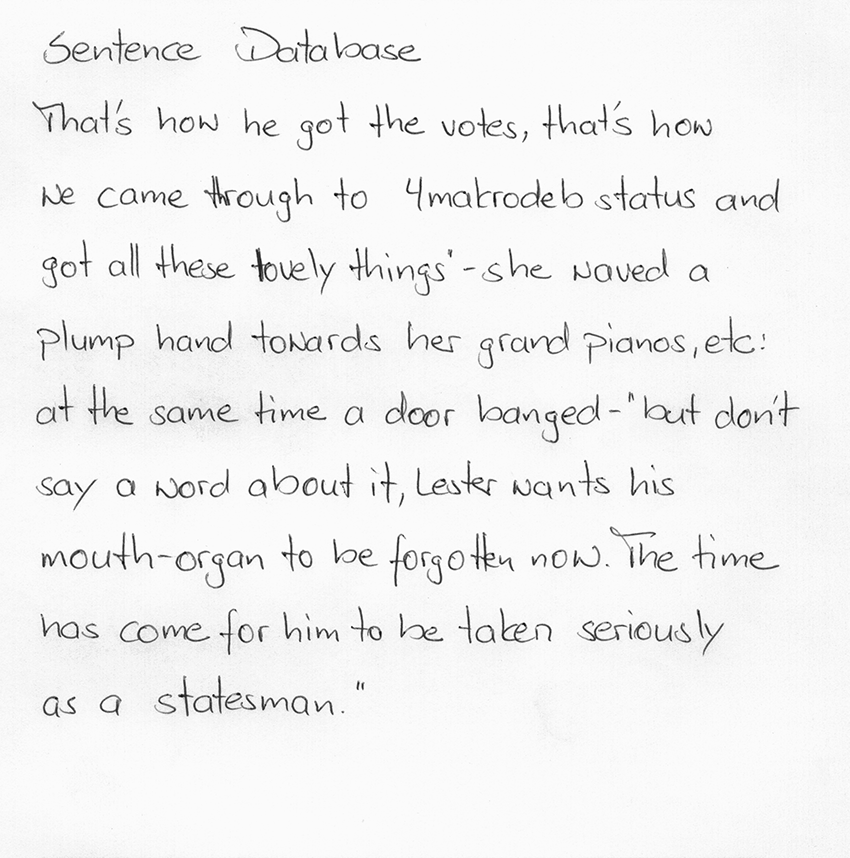 Sentence Database
That's how he got the votes, that's how
we came through to 4makrodeb status and
got all these lovely things' - she waved a
plump hand towards her grand pianos, etc:
at the same time a door banged - "but don't
say a word about it, Lester wants his
mouth-organ to be forgotten now. The time
has come for him to be taken seriously
as a statesman."